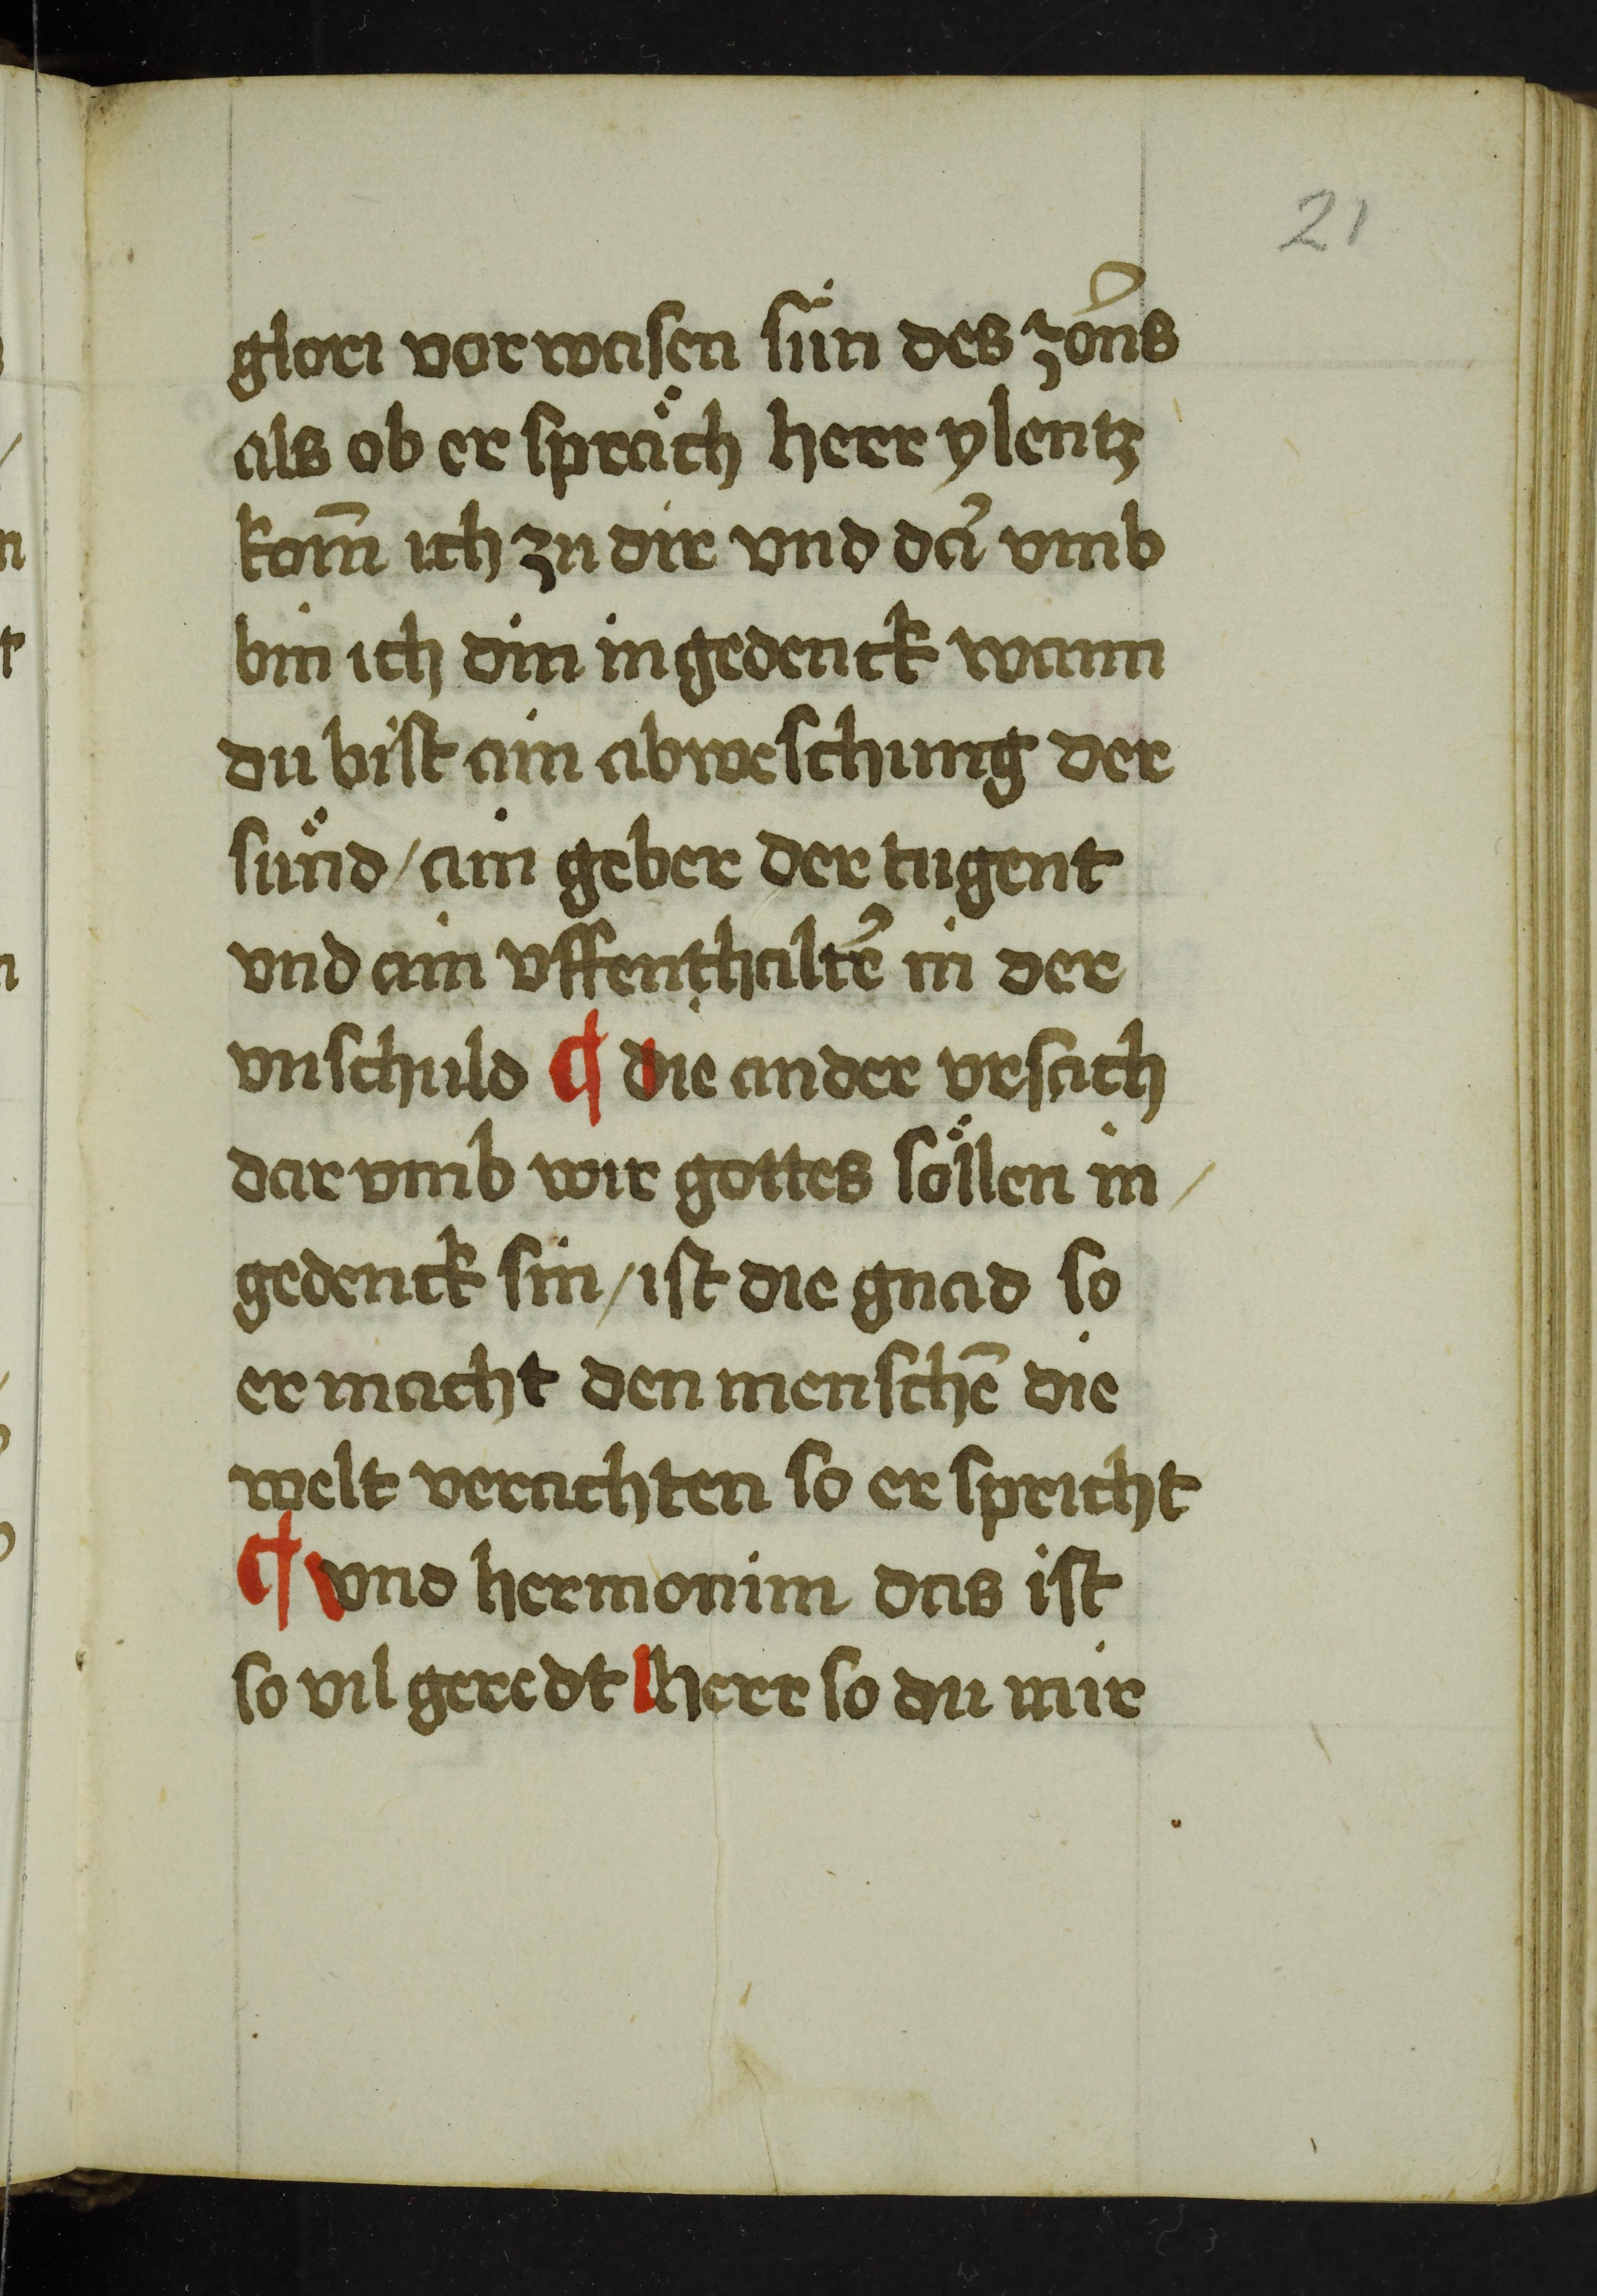 21
glori vor wasen sün des zoꝛ̉ns
als ob er spräch herr ylentz
kom̅ ich zu dir vnd da᷑ vmb
bin ich din ingedenck wann
du bist ain abweschung der
sünd / ain geber der tugent
vnd ain vffenthalte᷑ in der
vnschuld ¶ die ander vrsach
dar vmb wir gottes söllen in /
gedenck sin / ist die gnad so
er macht den menschē die
welt verachten so er spricht
¶ vnd hermonim das ist
so vil geredt herr so du mir